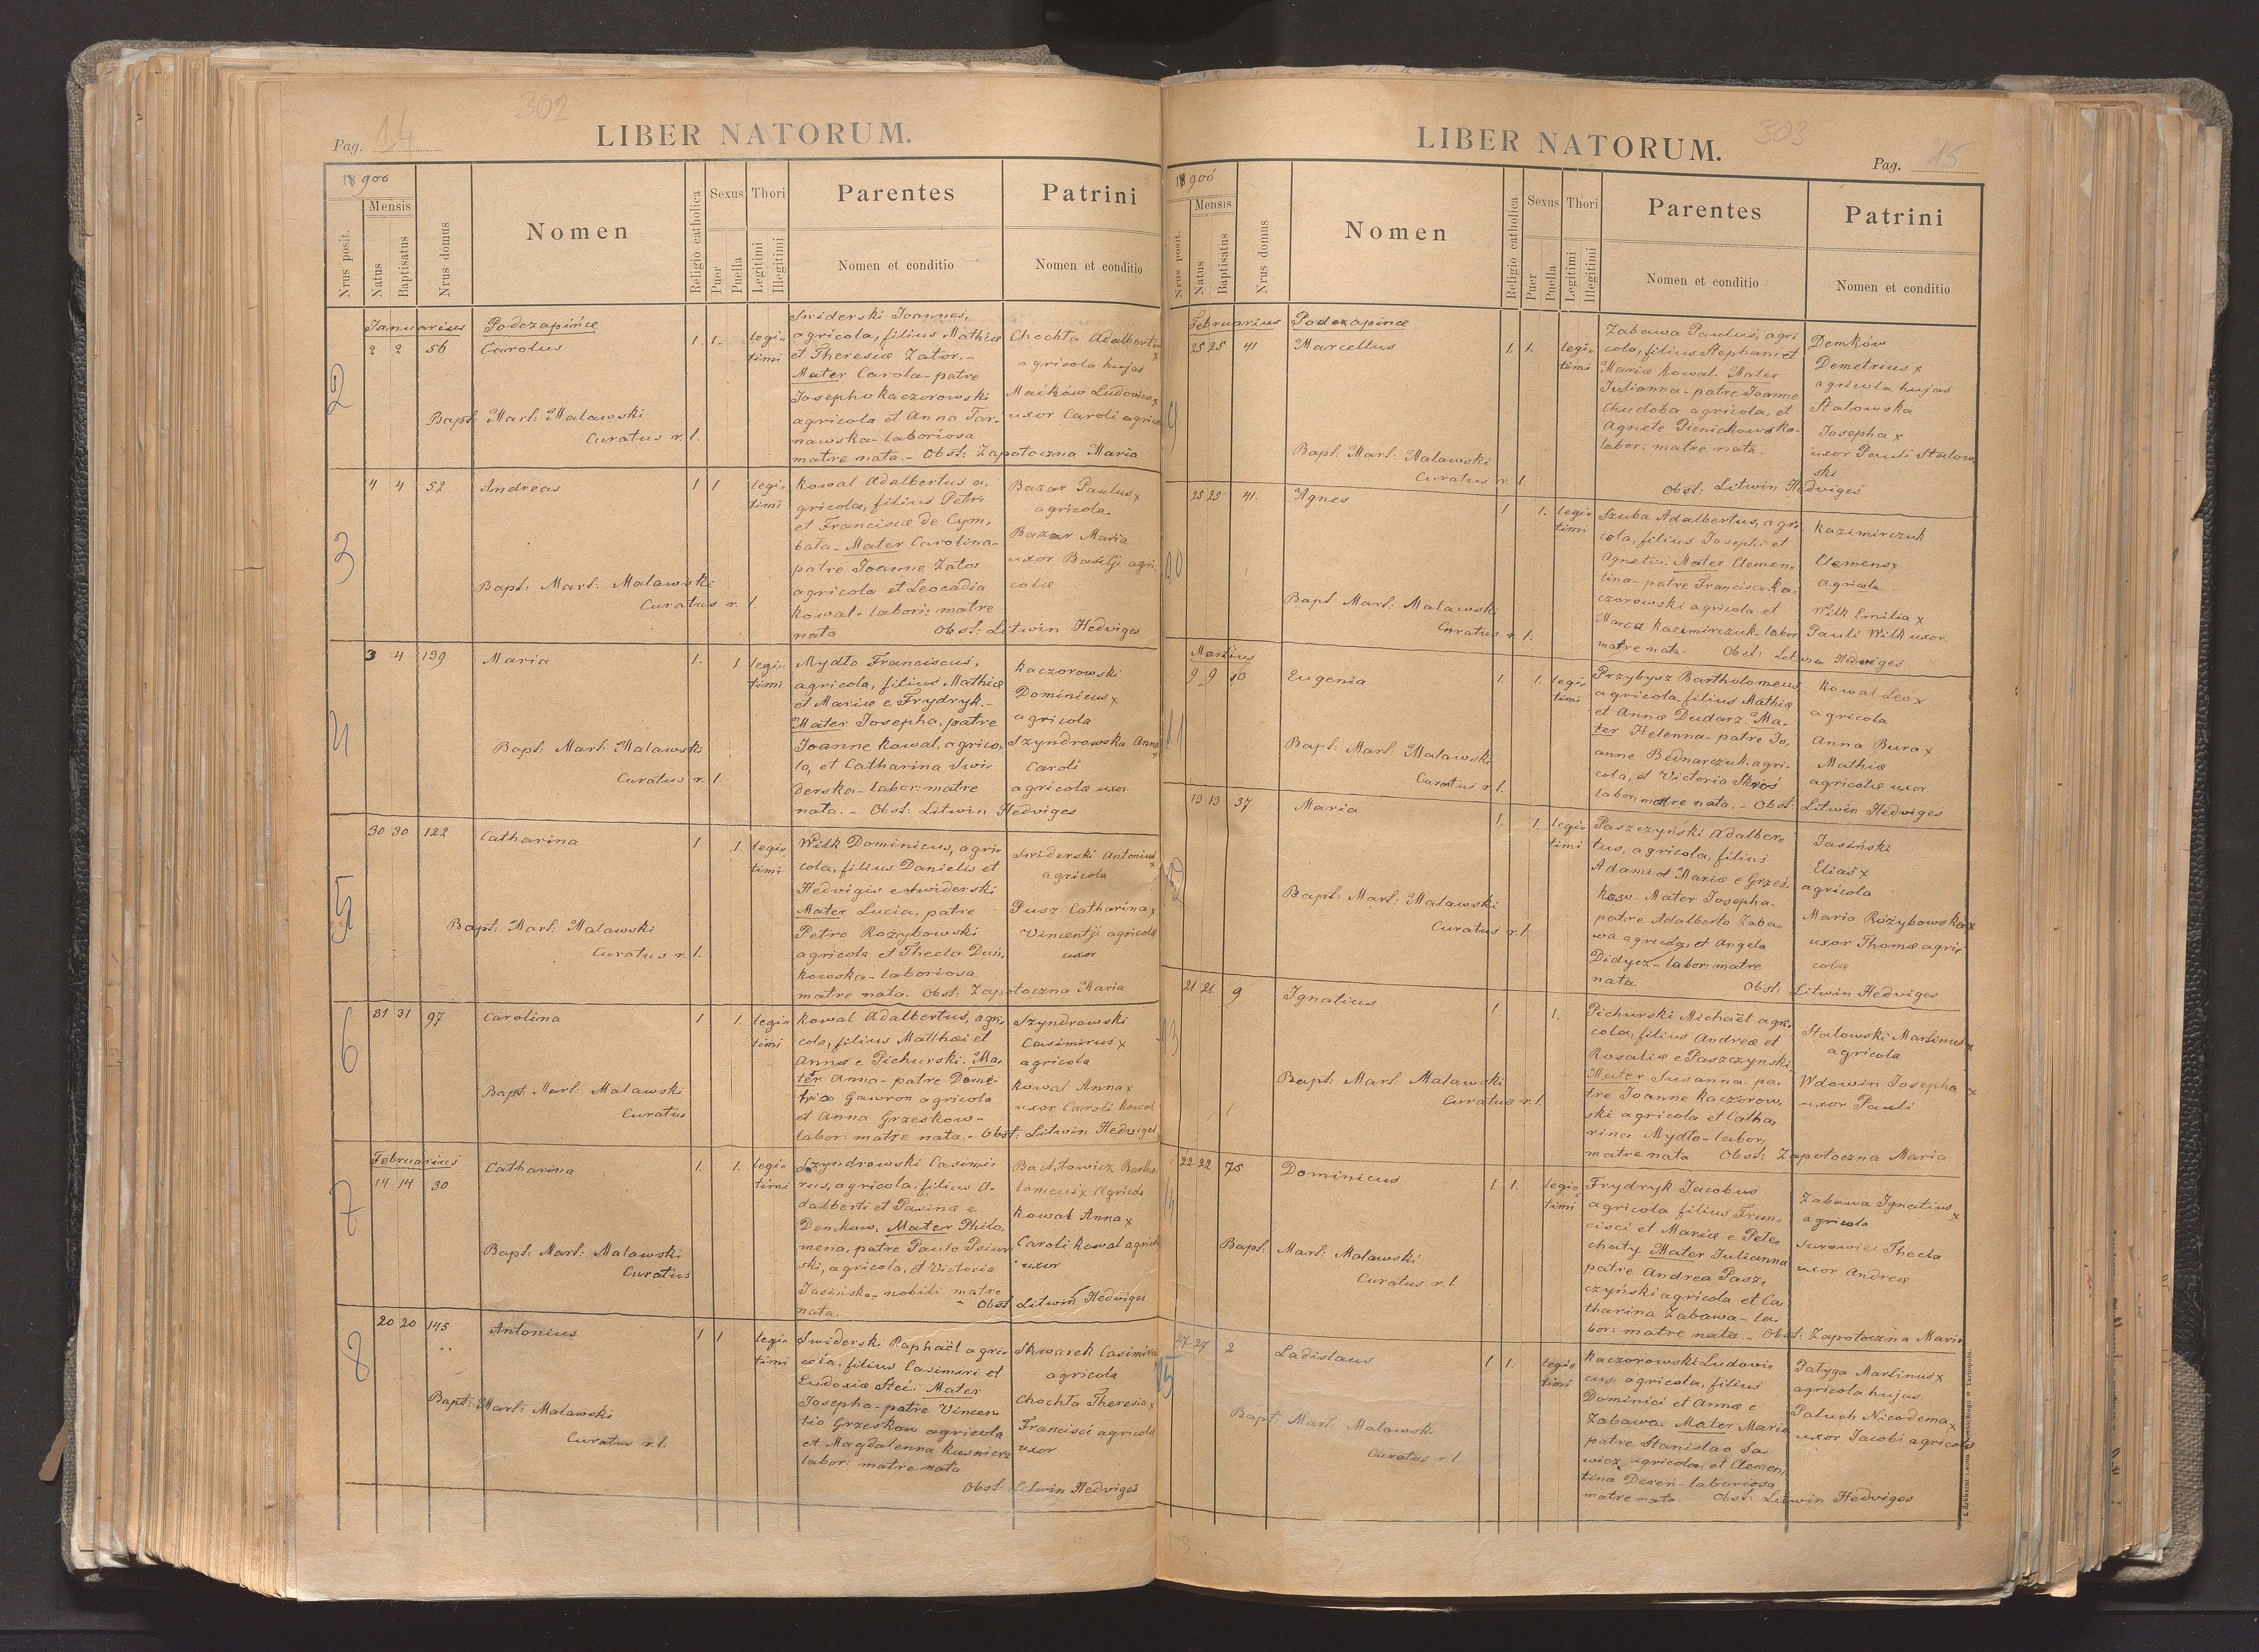 302
Pag. 14
LIBER NATORUM.
1900
Mensis
Nrus posit.
Natus
Baptisatus
Nrus domus
Nomen
Religio catholica
Sexus
Puer
Puella
Thori
Legitimi
Illegitimi
Parentes
Nomen et conditio
Patrini
Nomen et conditio
Januarius Podczapińce
2
2 2 56 Carolus 1. 1. legi-
timi
Bapt: Mart: Malawski
Curatus r. l.
Swiderski Joannes,
agricola, filius Mathiæ
et Theresiæ Zator.-
Mater Carola-patre
Josepho Kaczorowski
agricola et Anna Tar-
nawska-laboriosa
matre nata.- Obst: Zapotoczna Maria
Chochła Adalbertus x
agricola hujas
Maćków Ludovica x
uxor Caroli agricolæ
3
4 4 52 Andreas 1 1 legi-
timi
Bapt: Mart: Malawski
Curatus r. l.
Kowal Adalbertus a-
gricola, filius Petri
et Franciscæ de Cym-
bała-Mater Carolina-
patre Joanne Zator
agricola et Leocadia
Kowal-labori: matre
nata Obst: Litwin Hedviges
Bazar Paulus x
agricola
Bazar Maria
uxor Basilji agri-
colæ
4
3 4 139 Maria 1. 1 legi-
timi
Bapt: Mart: Malawski
Curatus r. l.
Mydło Franciscus,
agricola, filius Mathiæ
et Mariæ e Frydryk.-
Mater Josepha, patre
Joanne Kowal, agrico-
la, et Catharina Swi-
derska-labor: matre
nata.- Obst: Litwin Hedviges
Kaczorowski
Dominicus x
agricola
Szyndrowska Anna x
Caroli
agricolæ uxor
5
30 30 122 Catharina 1 1. legi-
timi
Bapt: Mart: Malawski
Curatus r. l.
Wilk Dominicus, agri-
cola, filius Danielis et
Hedvigis e Swiderski
Mater Lucia, patre
Petro Rozybowski
agricola et Thecla Dusi-
kowska-laboriosa
matre nata. Obst: Zapotoczna Maria
Swiderski Antonius x
agricola
Pusz Catharina x
Vincentji agricolæ
uxor
6
31 31 97 Carolina 1 1. legi-
timi
Bapt: Mart: Malawski
Curatus
Kowal Adalbertus, agri-
cola, filius Matthæi et
Annæ e Pichurski. Ma-
ter Anna-patre Deme-
trio Gawron agricola
et Anna Grzeskow-
labor: matre nata.- Obst: Litwin Hedviges
Szyndrowski
Casimirus x
agricola
Kowal Anna x
uxor Caroli Kowal
7
Februarius
14 14 30 Catharina 1. 1. legi-
timi
Bapt: Mart: Malawski
Curatus
Szyndrowski Casimi-
rus, agricola, filius A-
dalberti et Parinæ e
Denkow, Mater Philo-
mena, patre Paulo Psiur-
ski, agricola, et Victoria
Jasińska-nobili matre
nata. Obst: Litwin Hedviges
Bachtowicz Bartho-
lomeus x agricola
Kowal Anna x
Caroli Kowal agricolæ
uxor
8
20 20 145 Antonius 1 1 legi-
timi
Bapt: Mart: Malawski
Curatus r. l.
Swiderski Raphaël agri-
cola, filius Casimiri et
Eudoxiæ Stec. Mater
Josepha-patre Vincen-
tio Grzeskow agricola
et Magdalenna Kusnierz
labor: matre nata
Obst: Litwin Hedviges
Skwarek Casimirus
agricola
Chochła Theresia x
Francisci agricolæ
uxor
303
LIBER NATORUM.
Pag. 15
1900
Mensis
Nrus posit.
Natus
Baptisatus
Nrus domus
Nomen
Religio catholica
Sexus
Puer
Puella
Thori
Legitimi
Illegitimi
Parentes
Nomen et conditio
Patrini
Nomen et conditio
Februarius Podczapince
9
25 25 41 Marcellus 1. 1. legi-
timi
Bapt: Mart: Malawski
Curatus r. l.
Zabawa Paulus, agri-
cola, filius Stephani et
Mariæ Kowal. Mater
Julianna-patre Joanne
Chudoba agricola, et
Agnete Pienichowska-
labor: matre nata.
Obst: Litwin Hedviges
Demków
Demetrius x
agricola hujas
Stalowska
Josepha x
uxor Pauli Stalow-
ski
10
25 25 41. Agnes 1 1. legi-
timi
Bapt Mart: Malawski
Curatus r. l.
Szuba Adalbertus, agri-
cola, filius Josephi et
Agnetis. Mater Clemen-
tina-patre Francisco Ka-
czorowski agricola et
Maria Kazimirczuk-labor
matre nata- Obst: Litwin Hedwiges
Kazimirczuk
Clemens x
agricola
Wilk Emilia x
Pauli Wilk uxor
11
Martius
9 9 10 Eugenia 1. 1. legi-
timi
Bapt: Mart. Malawski
Curatus r. l.
Przybysz Bartholomeus,
agricola, filius Mathiæ
et Annæ Dudarz. Ma-
ter Helenna-patre Jo-
anne Bednarczuk agri-
cola, et Victoria Skroś
labor: matre nata.- Obst: Litwin Hedviges
Kowal Leo x
agricola
Anna Bura x
Mathiæ
agricolæ uxor
12
13 13 37 Maria 1. 1. legi-
timi
Bapt: Mart: Malawski
Curatus r. l.
Paszczyński Adalber-
tus, agricola, filius
Adami et Mariæ e Grześ-
kow- Mater Josepha-
patre Adalberto Zaba-
wa agricola, et Angela
Didycz-labor: matre
nata. Obst: Litwin Hedviges
Jasiński
Elias x
agricola
Maria Rozybowska x
uxor Thomæ agri-
colæ
13
21 21 9 Ignatius 1. 1.
Bapt: Mart. Malawski
Curatus r. l.
Pichurski Michaël agri-
cola, filius Andreæ et
Rosaliæ e Paszczynski
Mater Susanna-pa-
tre Joanne Kaczorow-
ski agricola et Catha-
rina Mydło-labor:
matre nata Obst: Zapotoczna Maria
Stalowski Martinus x
agricola
Wdowin Josepha x
uxor Pauli
14
22 22 75 Dominicus 1 1. legi-
timi
Bapt: Mart: Malawski
Curatus r. l
Frydryk Jacobus
agricola filius Fran-
cisci et Mariæ e Pele-
chaty. Mater Julianna
patre Andrea Pasz-
czyński agricola et Ca-
tharina Zabawa-la-
bor: matre nata- Obst: Zapotoczna Maria
Zabawa Ignatius x
agricola
Surowiec Thecla
uxor Andreæ
15
27 27 2 Ladislaus 1 1. legi-
timi
Bapt: Mart: Malawski
Curatus r. l
Kaczorowski Ludovi-
cus, agricola, filius
Dominici et Annæ e
Zabawa. Mater Maria
patre Stanislao Sa-
wicz, agricola, et Clemen-
tina Dereń-laboriosa
matre nata Obst: Litwin Hedviges
Patyga Martinus x
agricola hujas
Paluch Nicodema x
uxor Jacobi agricolæ